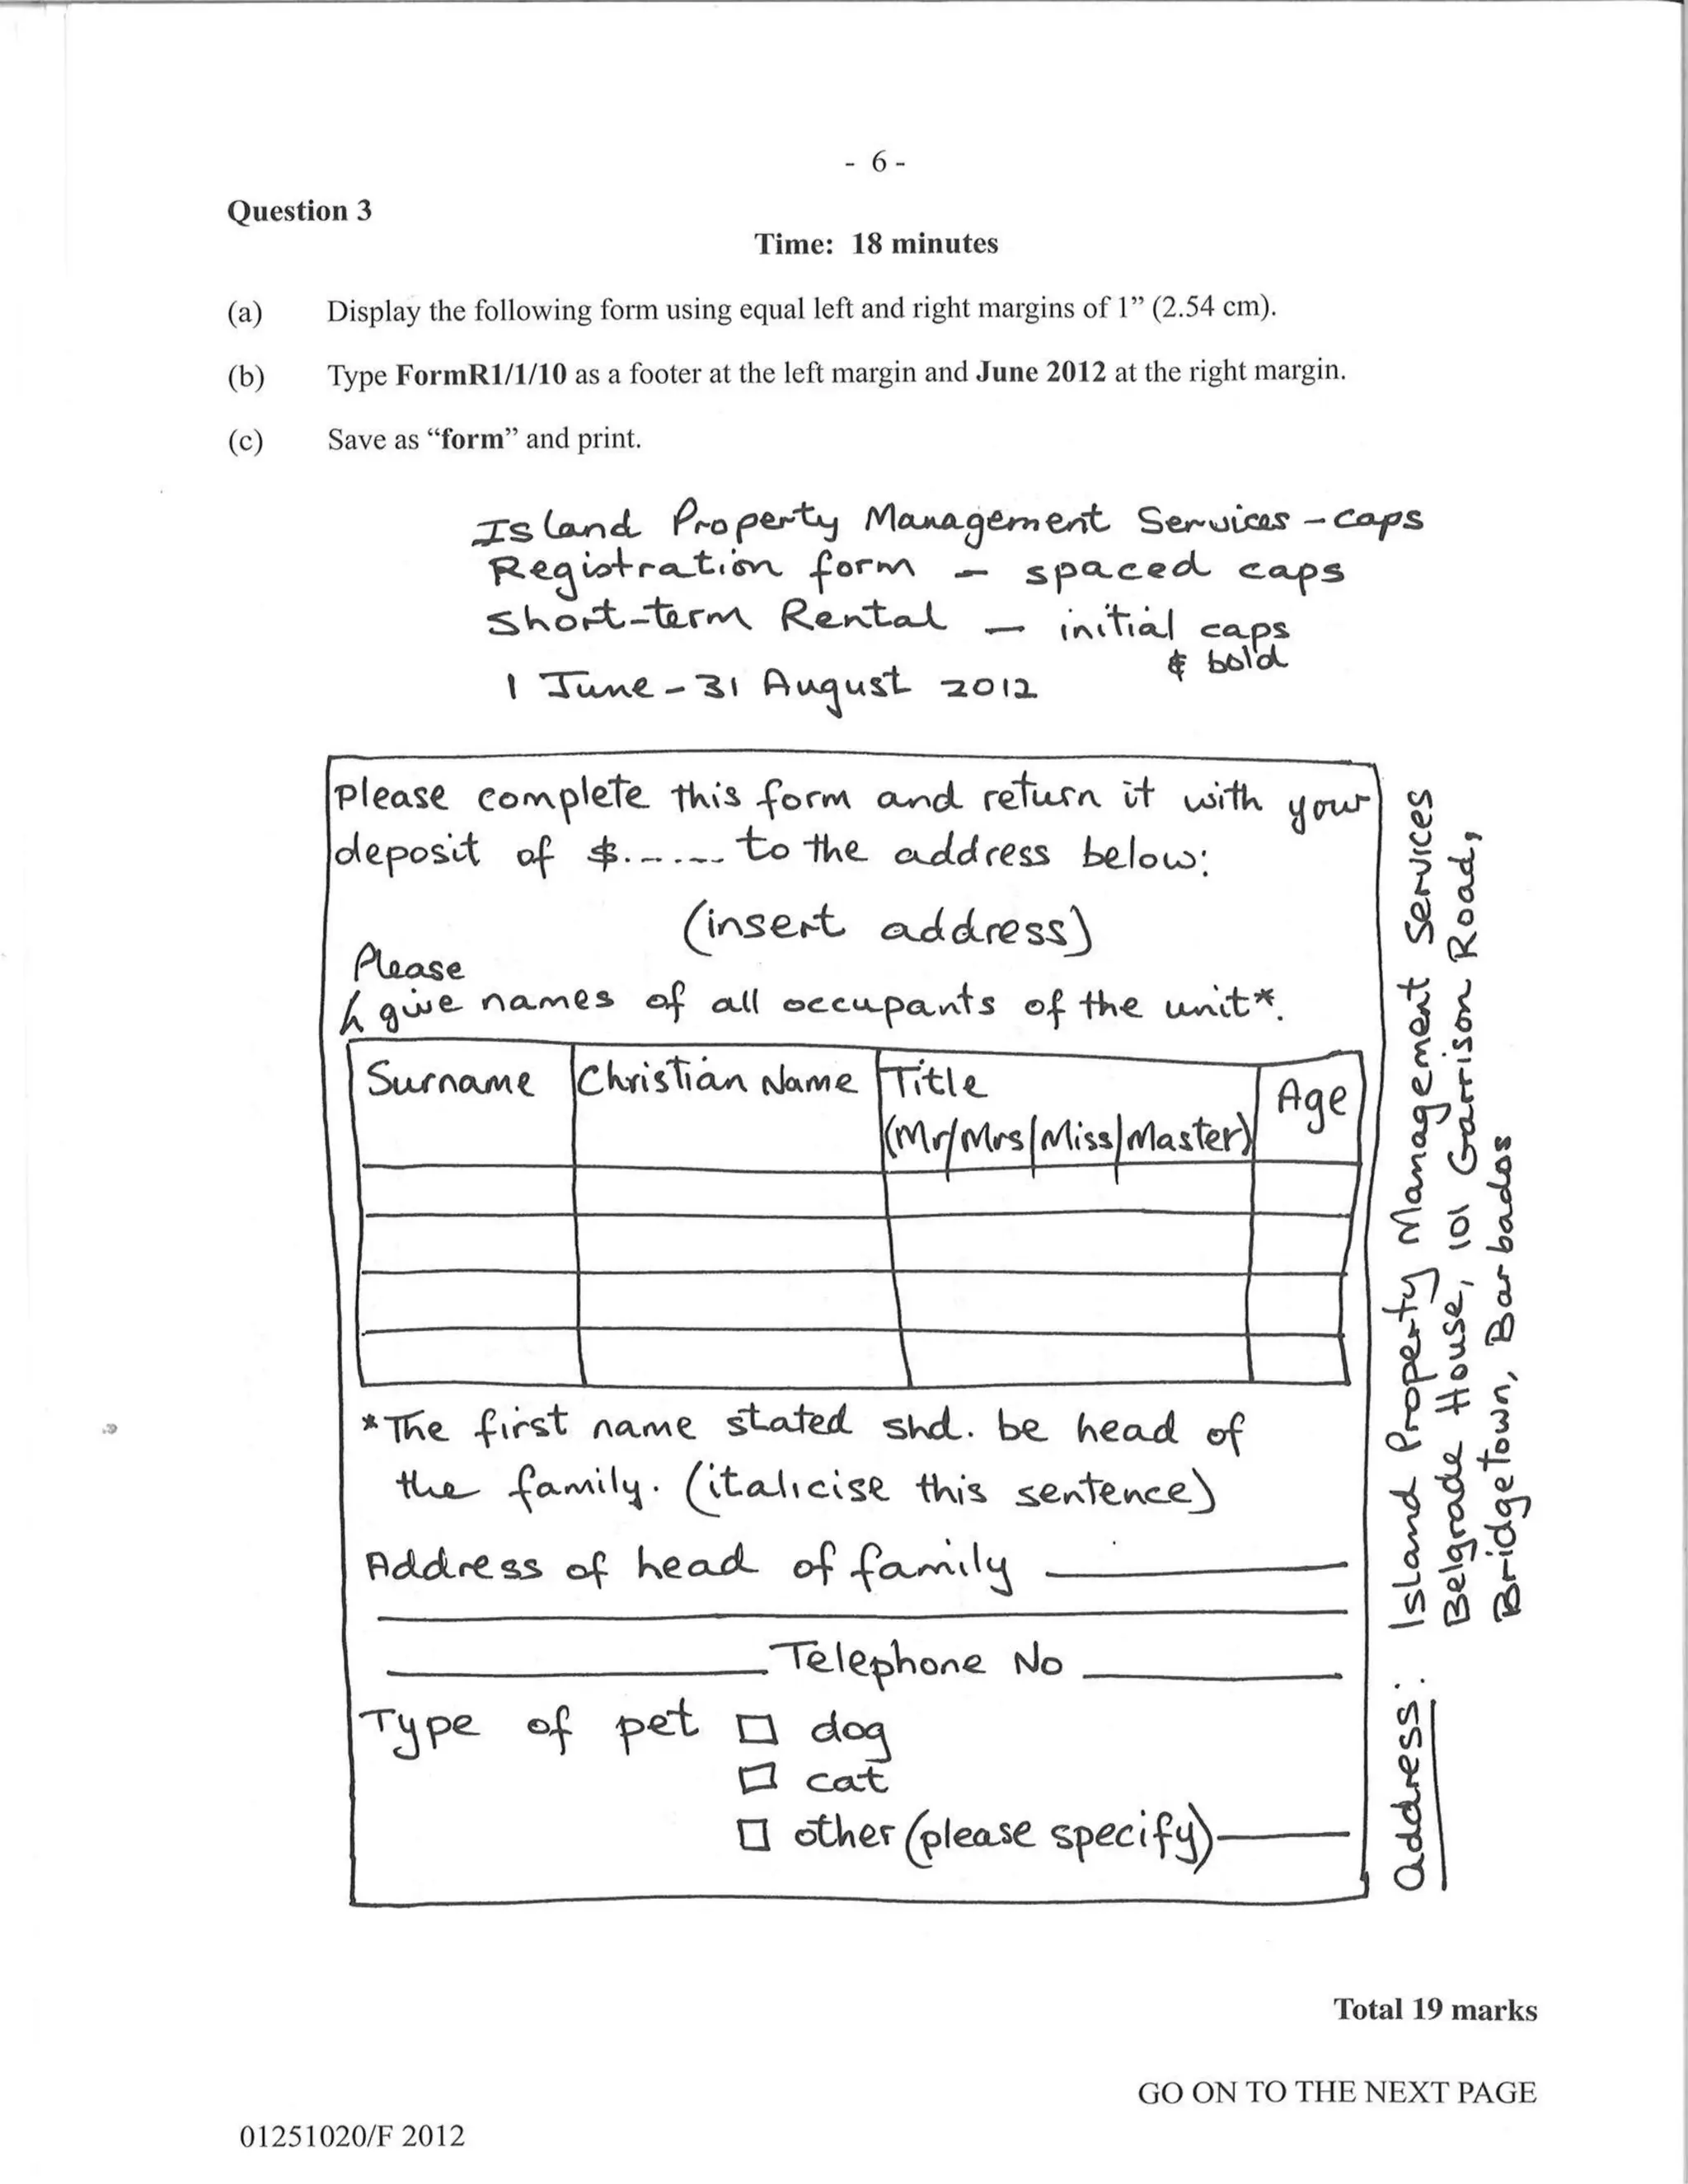 - 6 -
Question 3
Time: 18 minutes
(a) Display the following form using equal left and right margins of 1” (2.54 cm).
(b) Type FormR1/1/10 as a footer at the left margin and June 2012 at the right margin.
(c) Save as “form” and print.
Island Property Management Services - caps
Registration form - spaced caps
Short-term Rental - initial caps
& bold
1 June - 31 August 2012
Please complete this form and return it with your
deposit of $....... to the address below:
(insert address)
Please
give names of all occupants of the unit*.
Surname Christian Name Title Age
(Mr/Mrs/Miss/Master)
*The first name stated shd. be head of
the family. (italicise this sentence)
Address of head of family
Telephone No
Type of pet □ dog
□ cat
□ other (please specify)
Address: Island Property Management Services
Belgrade House, 101 Garrison Road,
Bridgetown, Barbados
Total 19 marks
GO ON TO THE NEXT PAGE
01251020/F 2012